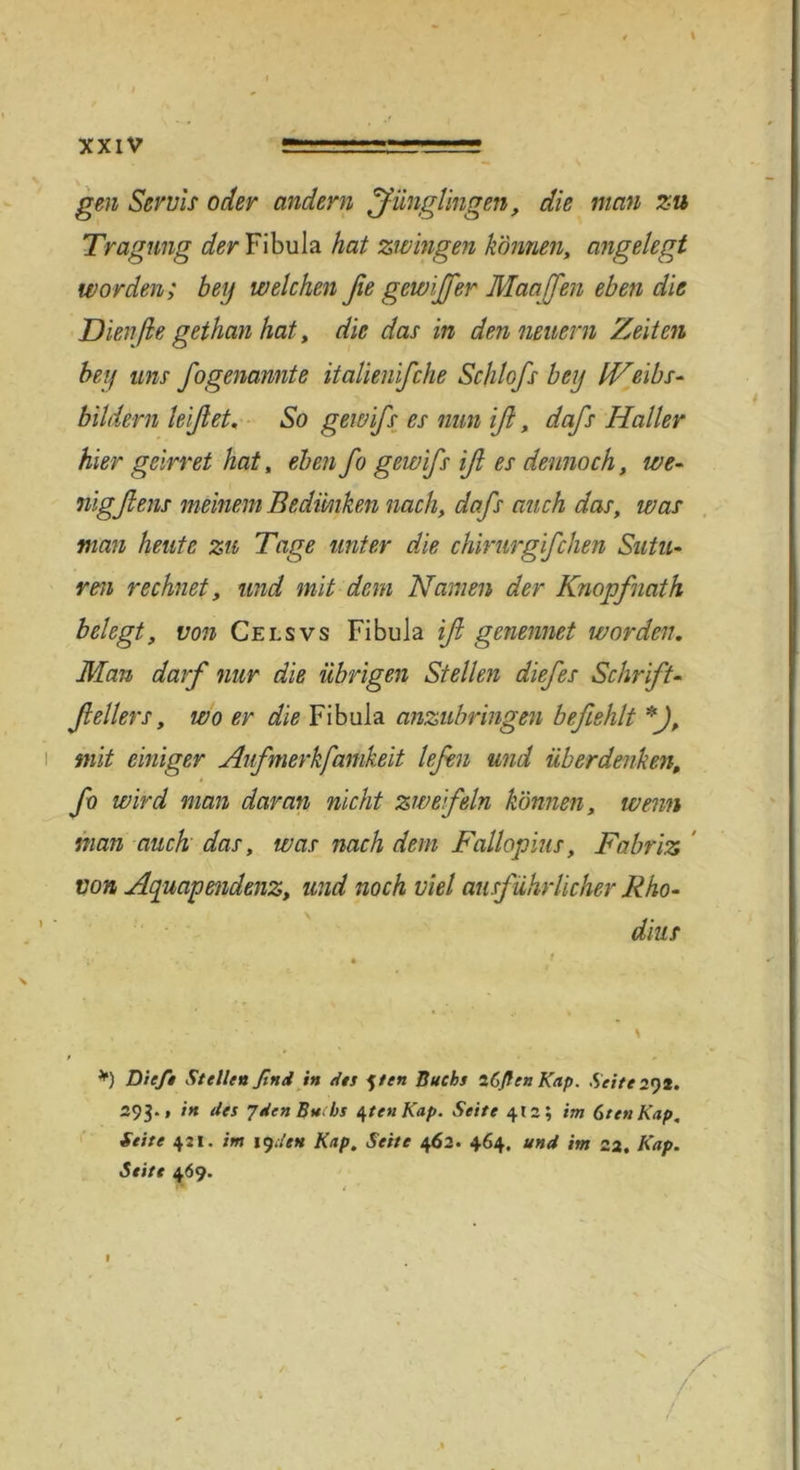 XXIV
gen Servis oder andern Jünglingen, die man zu
Tragung der Fibula hat zwingen können, angelegt
worden; bey welchen ſie gewiſſer Maaſſen eben die
Dienſte gethan hat, die das in den neuern Zeiten
bey uns ſogenannte italieniſche Schloſs bey Weibs-
bildern leiſtet. So gewiſs es nun iſt, daſs Haller
hier geirret hat, eben ſo gewiſs iſt es dennoch, we-
nigſtens meinem Bedünken nach, daſs auch das, was
man heute zu Tage unter die chirurgiſchen Sutu-
ren rechnet, und mit dem Namen der Knopfnath
belegt, von CELSVS Fibula iſt genennet worden.
Man darf nur die übrigen Stellen dieſes Schrift-
ſtellers, wo er die Fibula anzubringen beſiehlt *),
mit einiger Aufmerkſamkeit leſen und überdenken,
ſo wird man daran nicht zweifeln können, wenn
man auch das, was nach dem Fallopius, Fabriz
von Aquapendenz, und noch viel ausführlicher Rho-
dius
*) Dieſe Stellen ſind in des 5ten Buchs 26ſten Kap. Seite 292.
293., in des 7den Buchs 4ten Kap. Seite 412; im 6ten Kap.
Seite 421. im 19den Kap. Seite 462. 464. und im 22. Kap.
Seite 469.